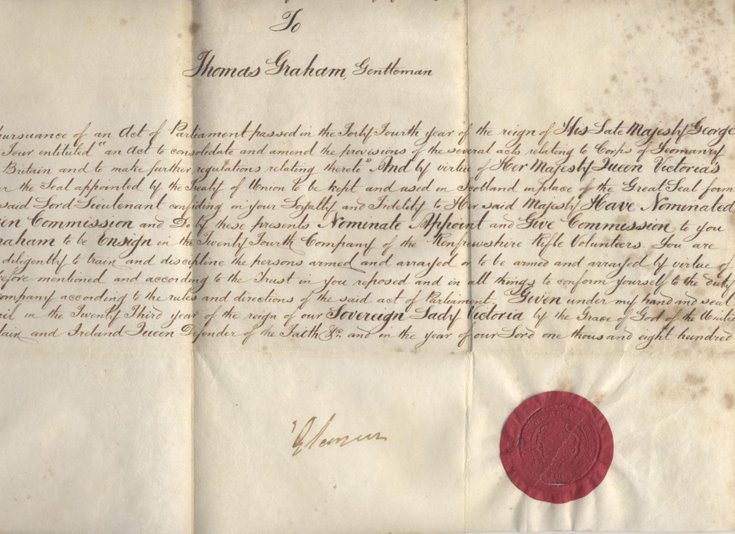 To
Thomas Graham, Gentleman
pursuance of an Act of Parliament passed in the Forty Fourth year of the reign of His Late Majesty George
Four entituled "an Act to consolidate and amend the provisions of the several acts relating to Corps of Yeomanry
Britain and to make further regulations relating thereto" And by virtue of Her Majesty Queen Victoria's
the Seal appointed by the Treaty of Union to be kept and used in Scotland in place of the Great Seal form
said Lord Lieutenant confiding in your Loyalty and Fidelity to Her said Majesty Have Nominated
Commission and Do by these presents Nominate Appoint and Give Commission to you
Graham to be Ensign in the Twenty Fourth Company of the Renfrewshire Rifle Volunteers. You are
diligently to train and discipline the persons armed and arrayed or to be armed and arrayed by virtue of
before mentioned and according to the Trust in you reposed and in all things to conform yourself to the duty
Company according to the rules and directions of the said act of Parliament. Given under my hand and seal
in the Twenty Third year of the reign of our Sovereign Lady Victoria by the Grace of God of the United
and Ireland Queen Defender of the Faith &c. and in the year of our Lord one thousand and eight hundred